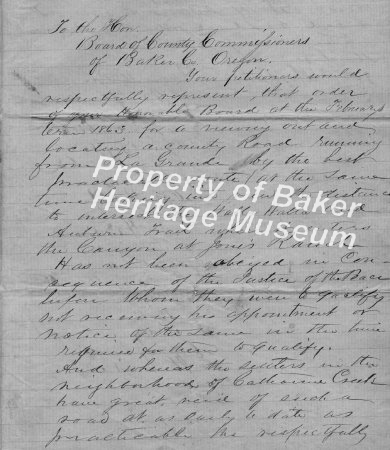 To the Hon.
Board of County Commissioners
of Baker Co, Oregon.
Your petitioners would
respectfully represent, that order
of your Honorable Board at the February
term 1863. for a viewing out and
locating a county Road running
from La Grande by the best
practicable route at the same
time
to intersect the Walla
Auburn Trail
the Canyon at Jones Ranch
Has not been obeyed in con-
sequence of the Justice of the Peace
before whom they were to qualify
not receiving his appointment or
notice of the same in the time
required for them to qualify.
And whereas the settlers in the
neighborhood of Catharine Creek
have great need of such a
road at as early a date as
practicable he respectfully
Property of Baker
Heritage Museum